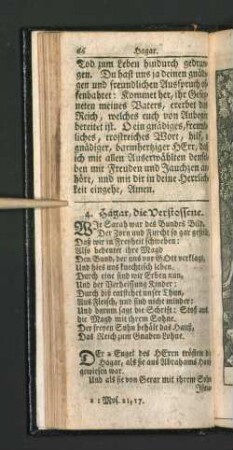 66 Hagar.
Tod zum Leben hindurch gedrun-
gen. Du hast uns ja deinen gnädi-
gen und freundlichen Ausspruch ge-
fenbahret: Kommet her, ihr Geseg-
neten meines Vaters, ererbet das
Reich, welches euch von Anbegin
bereitet ist. Dein gnädiges, freund-
liches, trostreiches Wort, hilf,
gnädiger, barmhertziger HErr, daß
ich mit allen Auserwählten denselb-
ben mit Freuden und Jauchzen an-
höre, und mit dir in deine Herrlich-
keit eingehe, Amen.
4. Hagar, die Verstossene.
WIe Sarah war des Bundes Bild,
Der Zorn und Furcht so gar gestillt,
Das wir in Freiheit schweben:
Also bedeutet ihre Magd
Den Bund, der uns vor GOtt verklagt,
Und hies uns knechtisch leben.
Durch eine sind wir Erben nun,
Und der Verheissung Kinder:
Durch diß entstehet unser Thun,
Aus Fleisch, und sind nicht minder:
Und darum sagt die Schrift: Stoß aus
die Magd mit ihrem Sohne.
Der freyen Sohn behält das Hauß,
Das Reich zum Gnaden-Lohne.
DEr a Engel des HErrn tröstete die
Hagar, als sie aus Abrahams Hauß
gewiesen war.
Und als sie von Gerar mit ihrem Sohn
a 1 Mos. 21, 17.